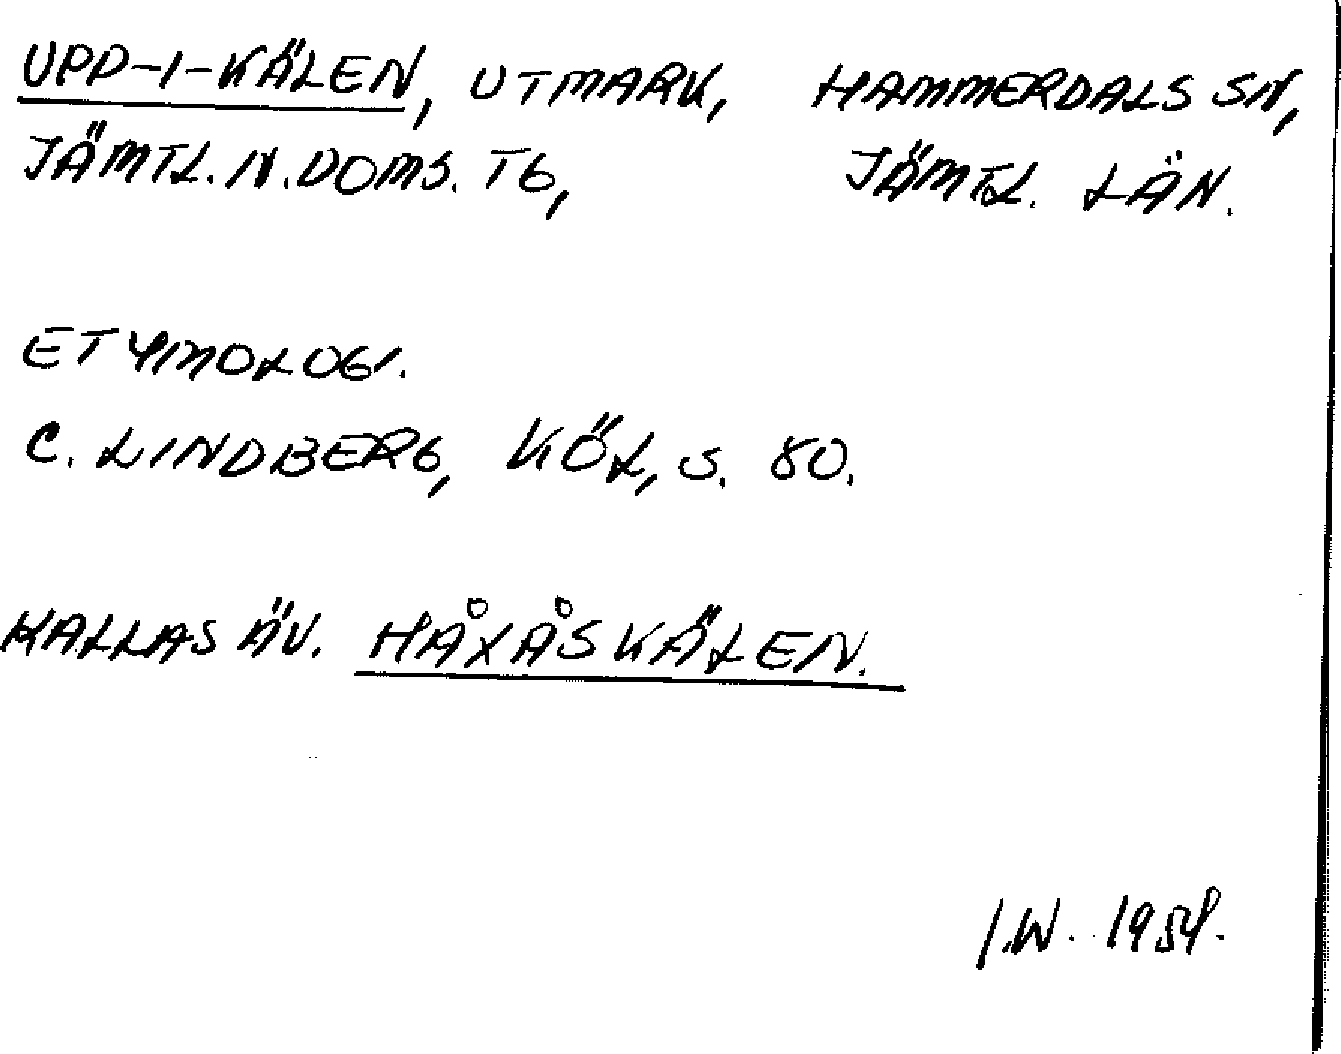 UPP-I-KÄLEN, UTMARK, HAMMERDALS SN,
JÄMTL. N. DOMS. TG, JÄMTL. LÄN.
ETYMOLOGI.
C. LINDBERG, KÖL, S. 80.
KALLAS ÄV. HÅXÅSKÄLEN.
I.W.